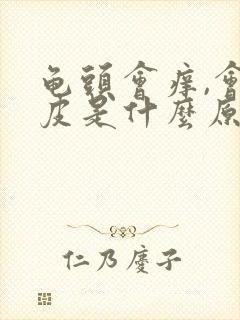 龟頭會痒,會
皮是什麼原
仁乃慶子